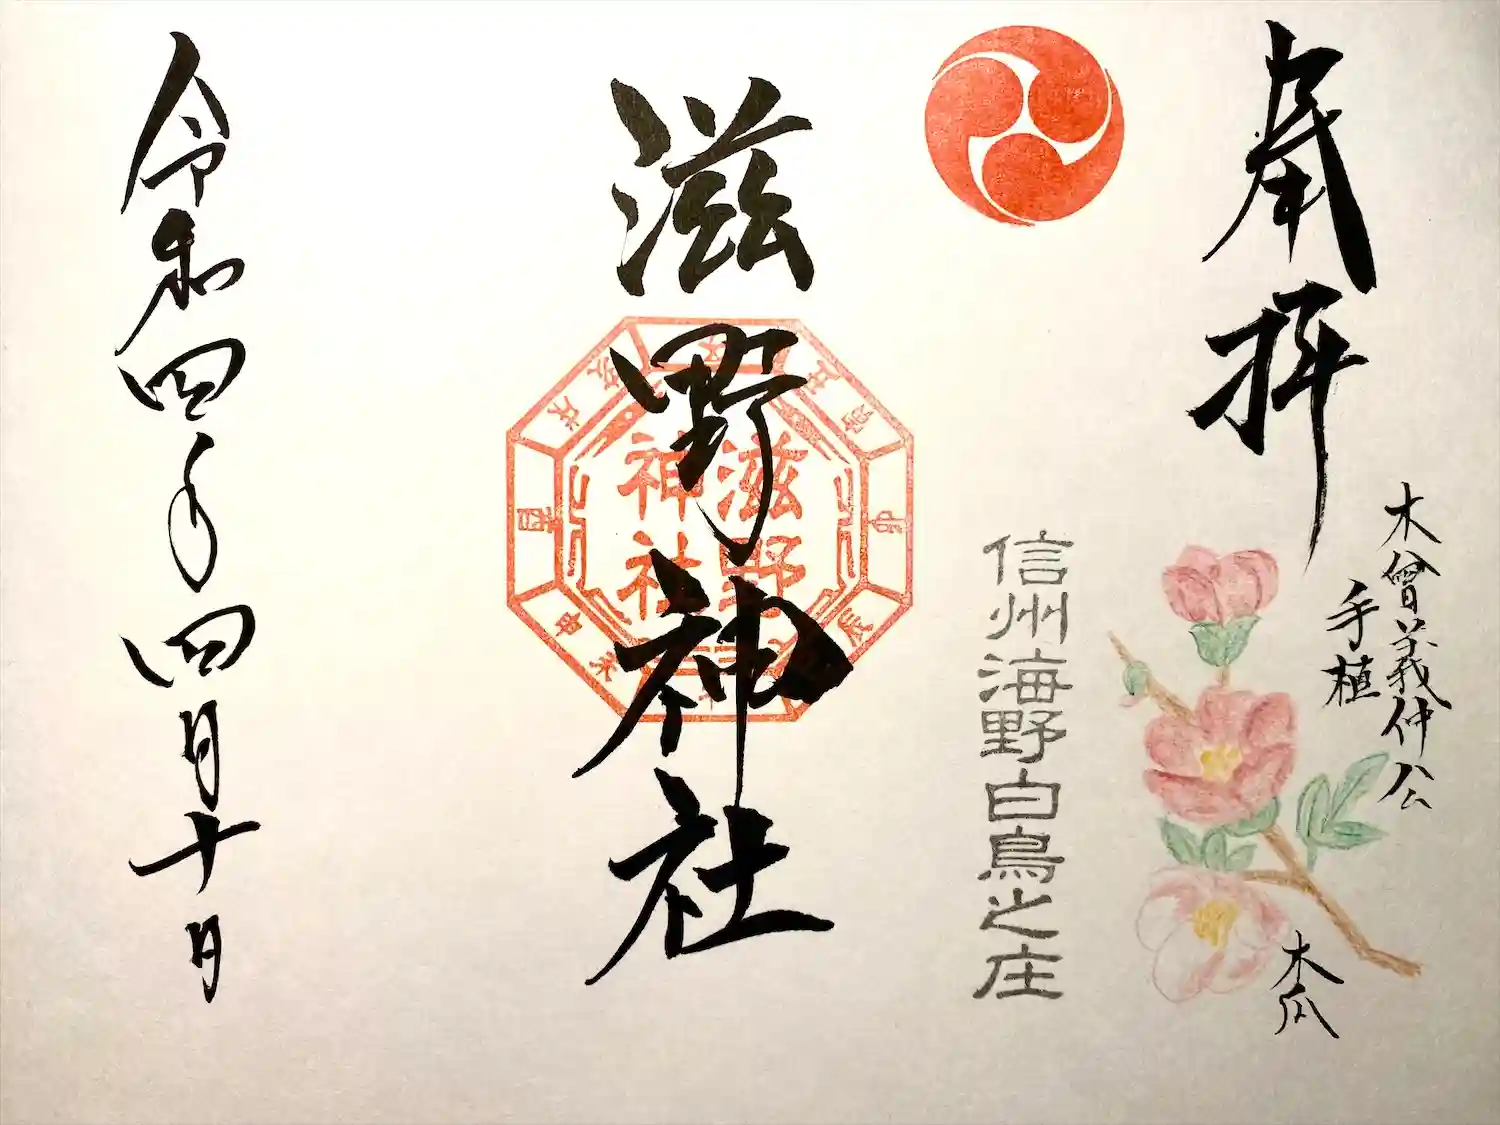 奉拝
木曾義仲公
手植
木瓜
信州海野白鳥之庄
滋野神社
滋野
神社
卯
辰
未
申
酉
戌
令和四年四月十日